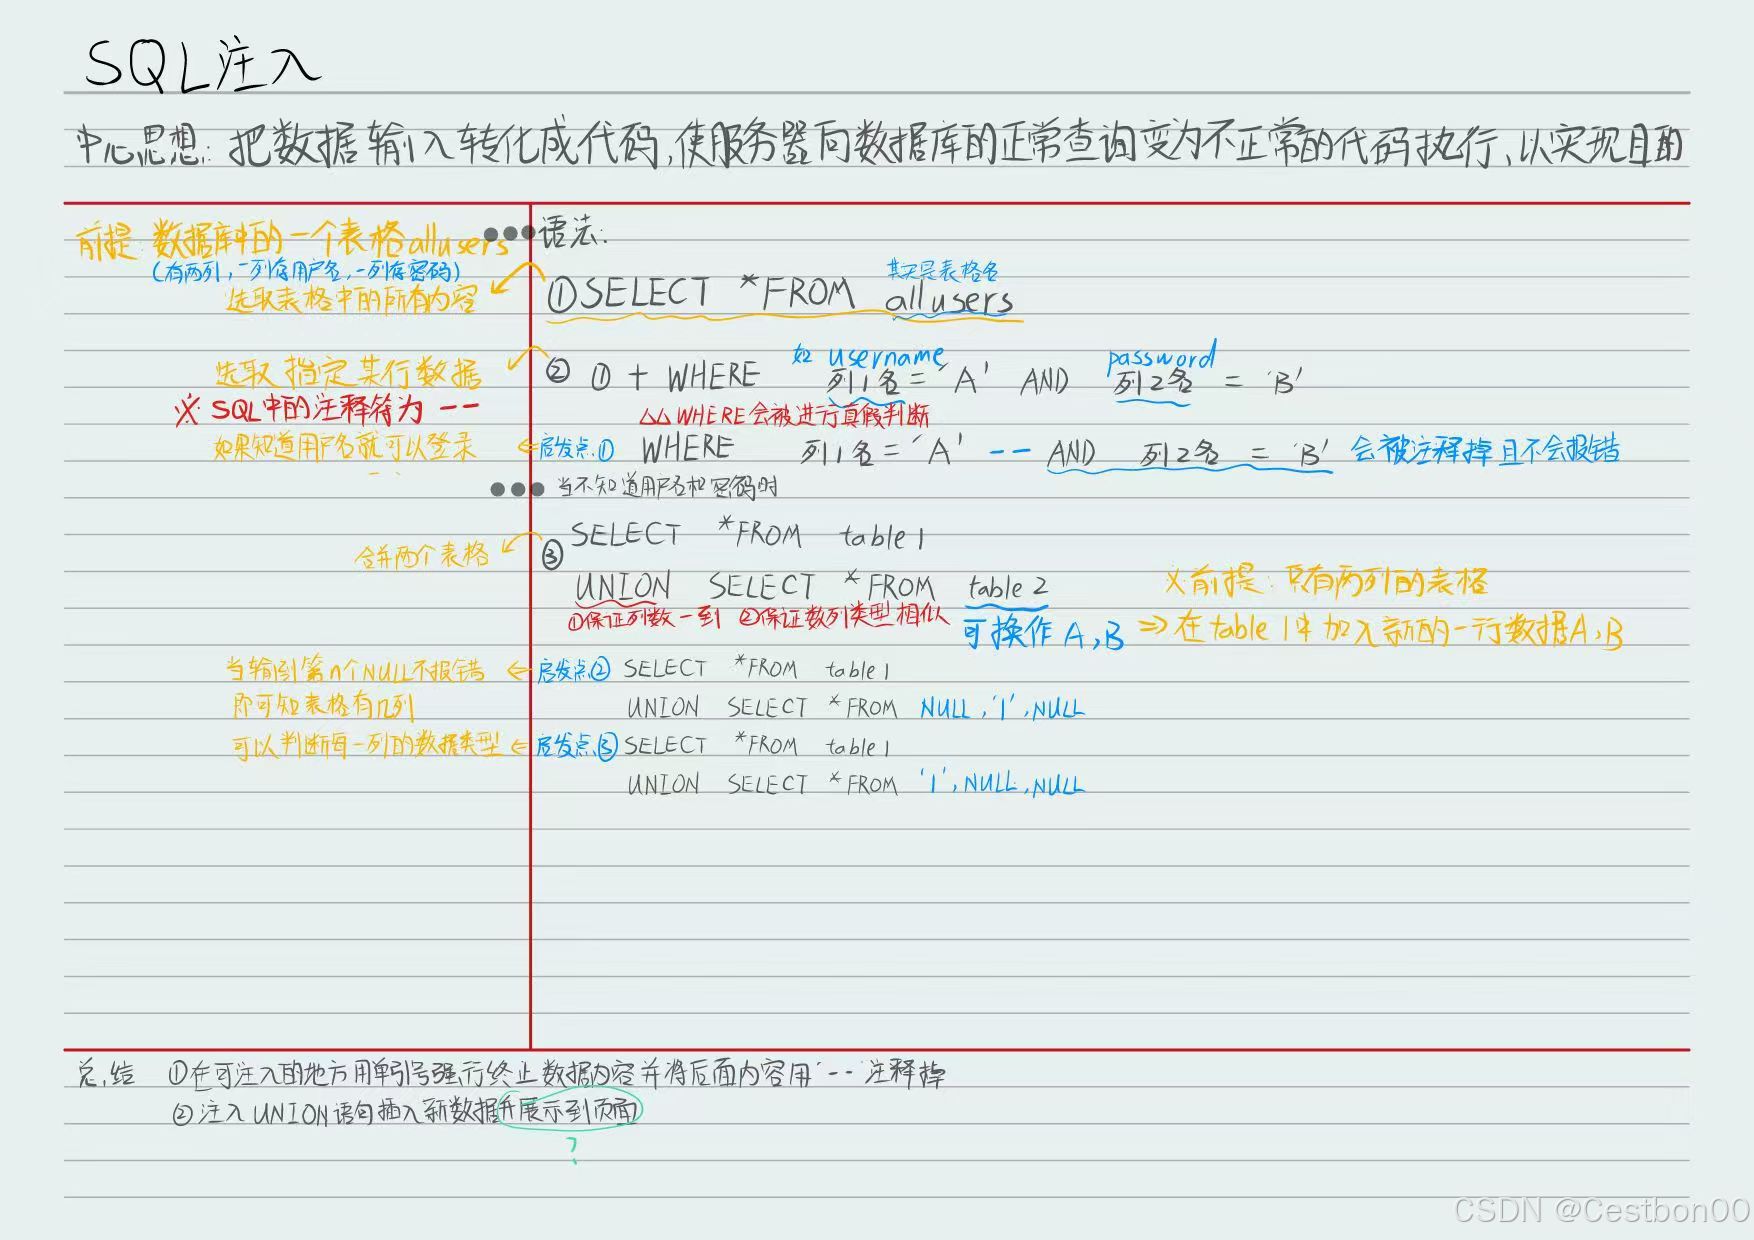 SQL注入
中心思想:把数据输入转化成代码,使服务器向数据库的正常查询变为不正常的代码执行,以实现目的
前提:数据库中的一个表格allusers
(有两列,一列存用户名,一列存密码)
选取表格中的所有内容
语法:
其实是表格名
①SELECT *FROM allusers
选取指定某行数据
如 username password
② ①+WHERE 列1名='A' AND 列2名='B'
※ SQL中的注释符为 --
△△WHERE会被进行真假判断
如果知道用户名就可以登录
←启发点① WHERE 列1名='A' -- AND 列2名='B' 会被注释掉且不会报错
当不知道用户名和密码时
合并两个表格
③ SELECT *FROM table1
UNION SELECT *FROM table2
①保证列数一到 ②保证数列类型相似
可操作A,B
※前提:只有两列的表格
⇒在table1中加入新的一行数据A,B
当输到第n个NULL不报错
即可知表格有几列
←启发点② SELECT *FROM table1
UNION SELECT *FROM NULL,'1',NULL
可以判断每一列的数据类型
←启发点③ SELECT *FROM table1
UNION SELECT *FROM '1',NULL,NULL
总结 ①在可注入的地方用单引号强行终止数据内容并将后面内容用'--注释掉
②注入UNION语句插入新数据并展示到页面
?
CSDN @Cestbon00